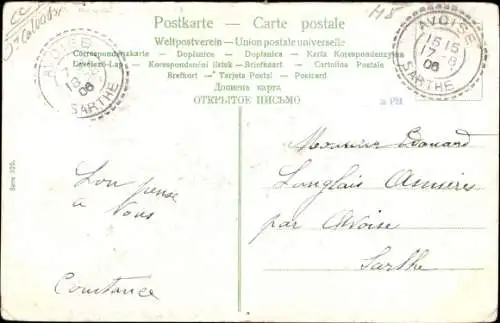 Postkarte – Carte postale
Weltpostverein – Union postale universelle
Correspondenzkarte – Dopisnice – Dopisnica – Karta Korespondenzyjna
Levelezö-Lap – Korespondenční lístek – Briefkaart – Cartolina Postale
Brefkort – Tarjeta Postal – Postcard
Дописна карта
ОТКРЫТОЕ ПИСЬМО
AVOISE
15 15
17 - 8
06
SARTHE
AVOISE
06
SARTHE
Serie 120.
Monsieur Edouard
Langlais Asnières
par Avoise
Sarthe
L'on pense
à Vous
Constance